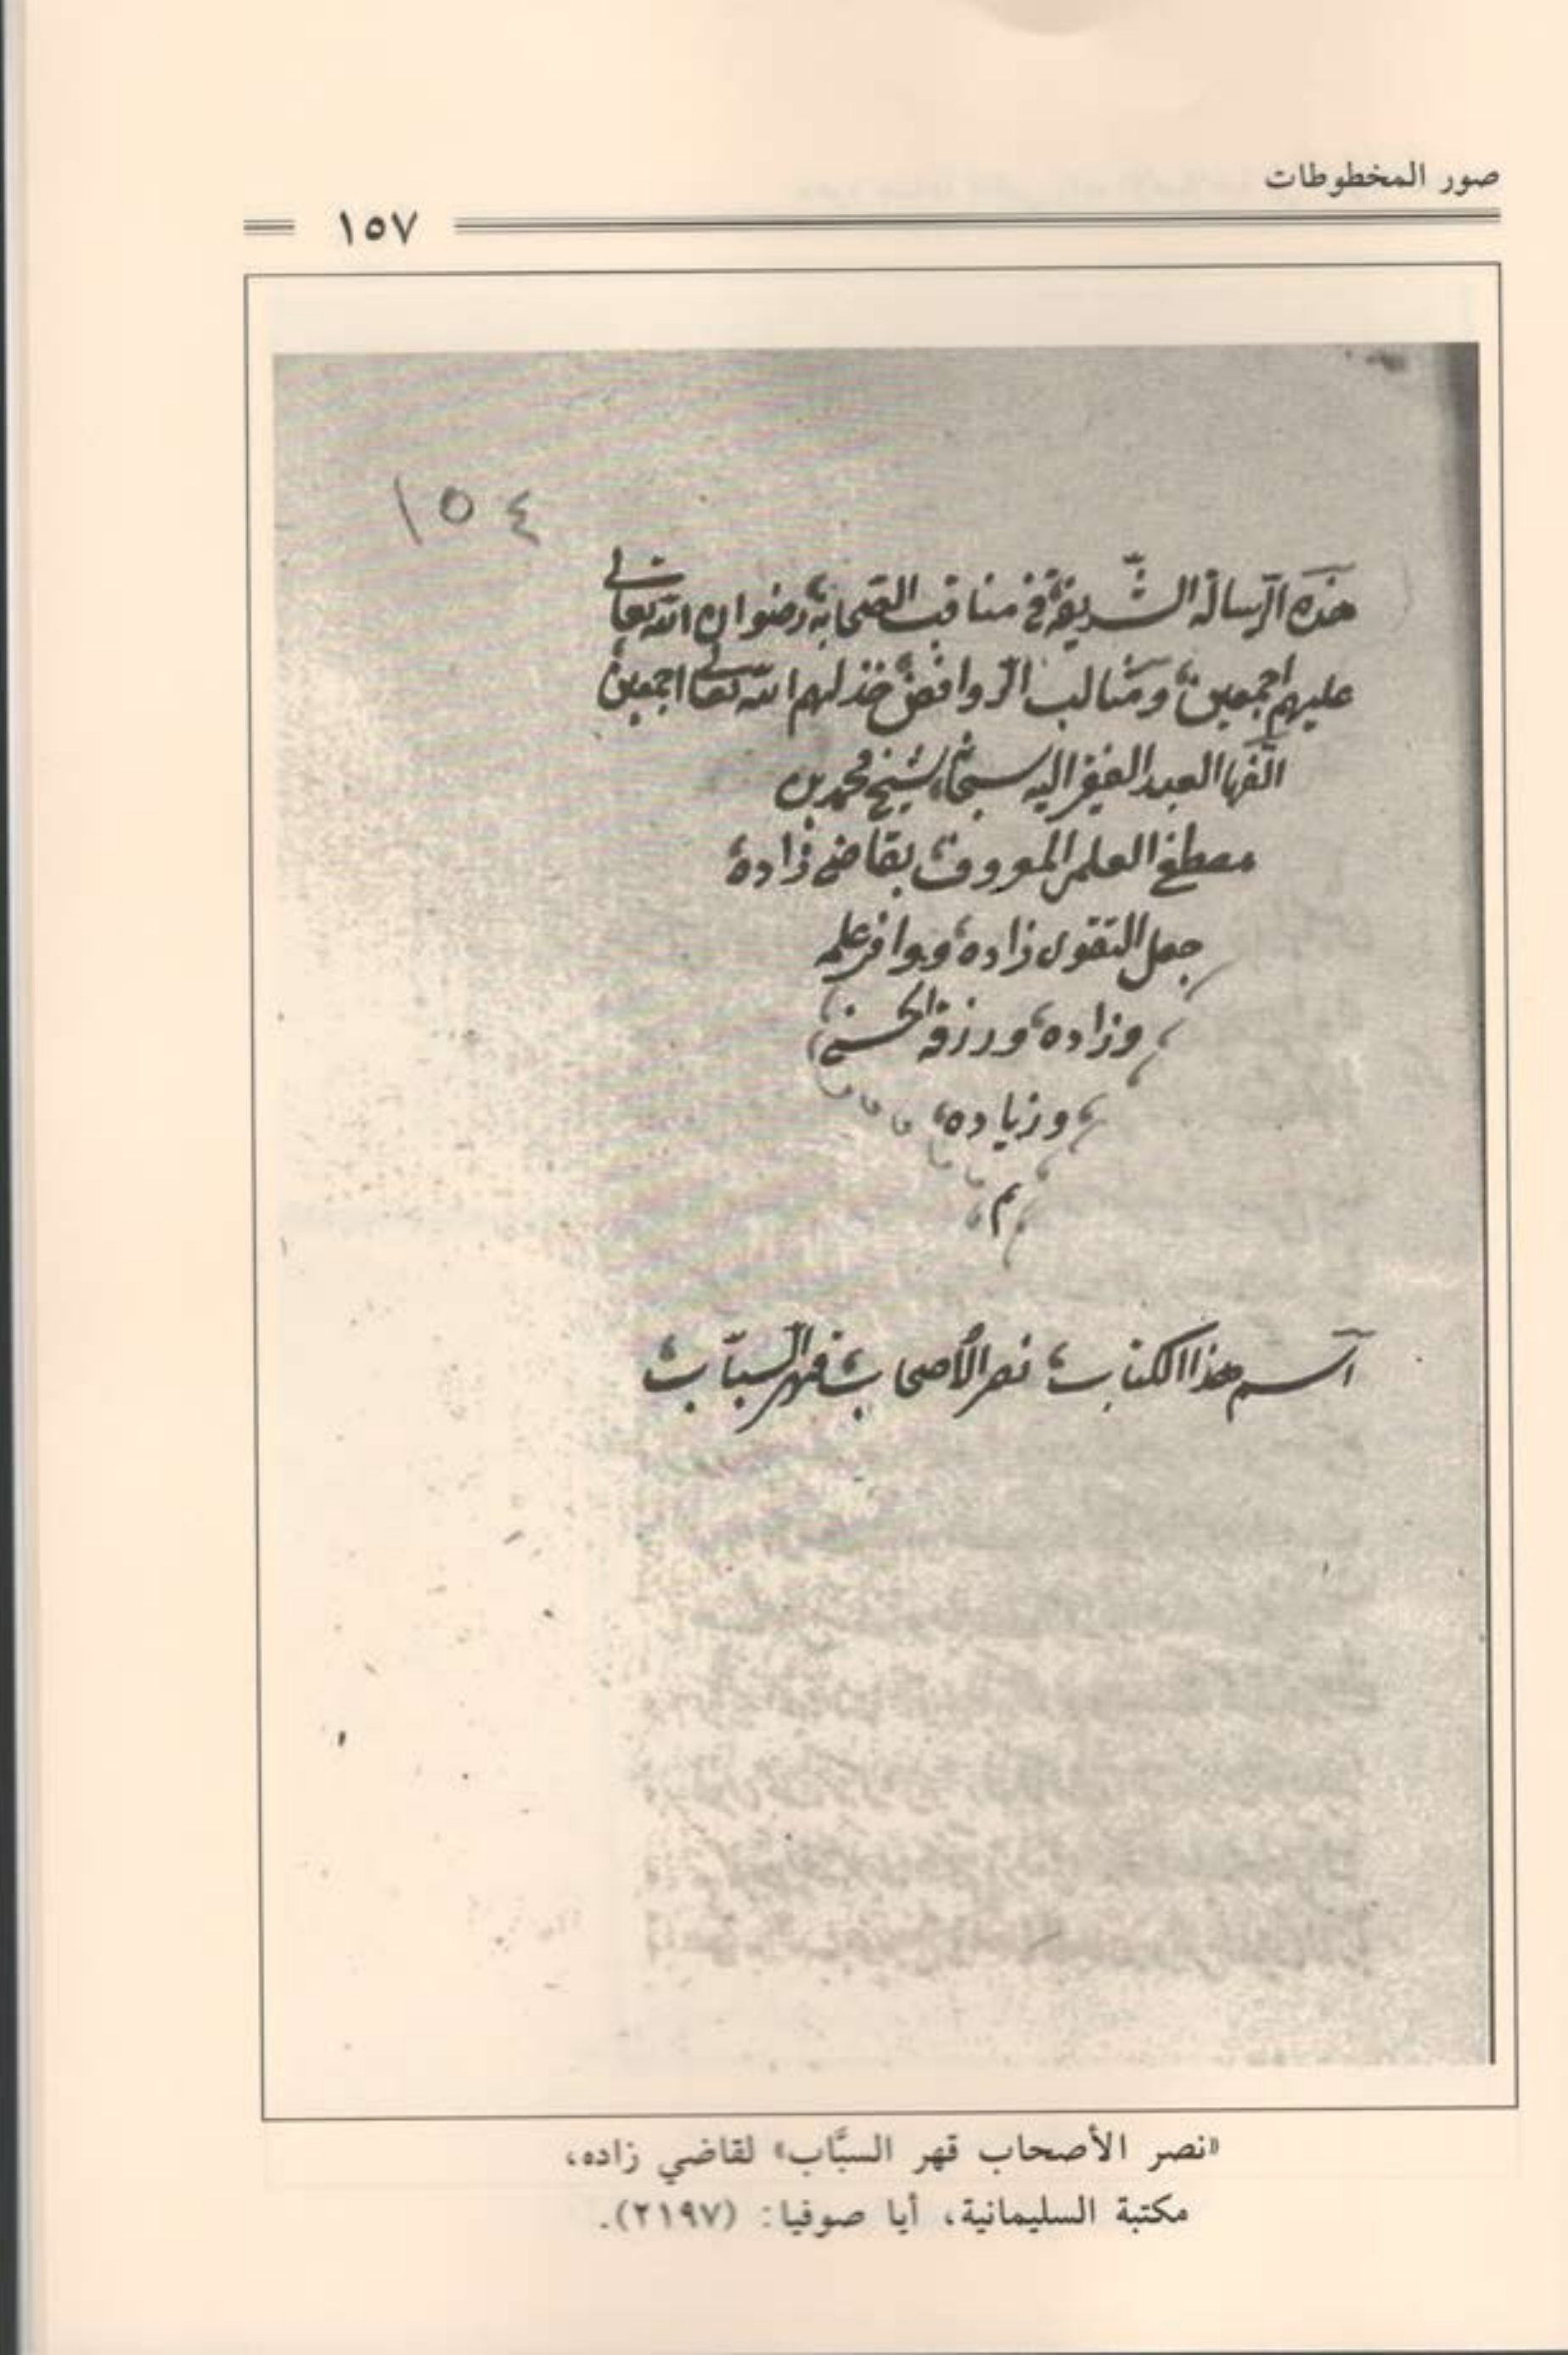 صور المخطوطات
١٥٧
١٥٤
هذه الرسالة الشريفة في مناقب الصحابة رضوان الله تعالى
عليهم اجمعين ومثالب الروافض خذلهم الله تعالى اجمعين
الفها العبد الفقير اليه سبحانه شيخ محمد بن
مصطفى العلمى المعروف بقاضى زاده
جعل التقوى زاده وبوافر علمه
وزاده ورزقه الحسنى
وزياده
م
اسم هذا الكتاب نصر الأصحاب قهر السباب
«نصر الأصحاب قهر السبَّاب» لقاضي زاده،
مكتبة السليمانية، أيا صوفيا: (٢١٩٧).